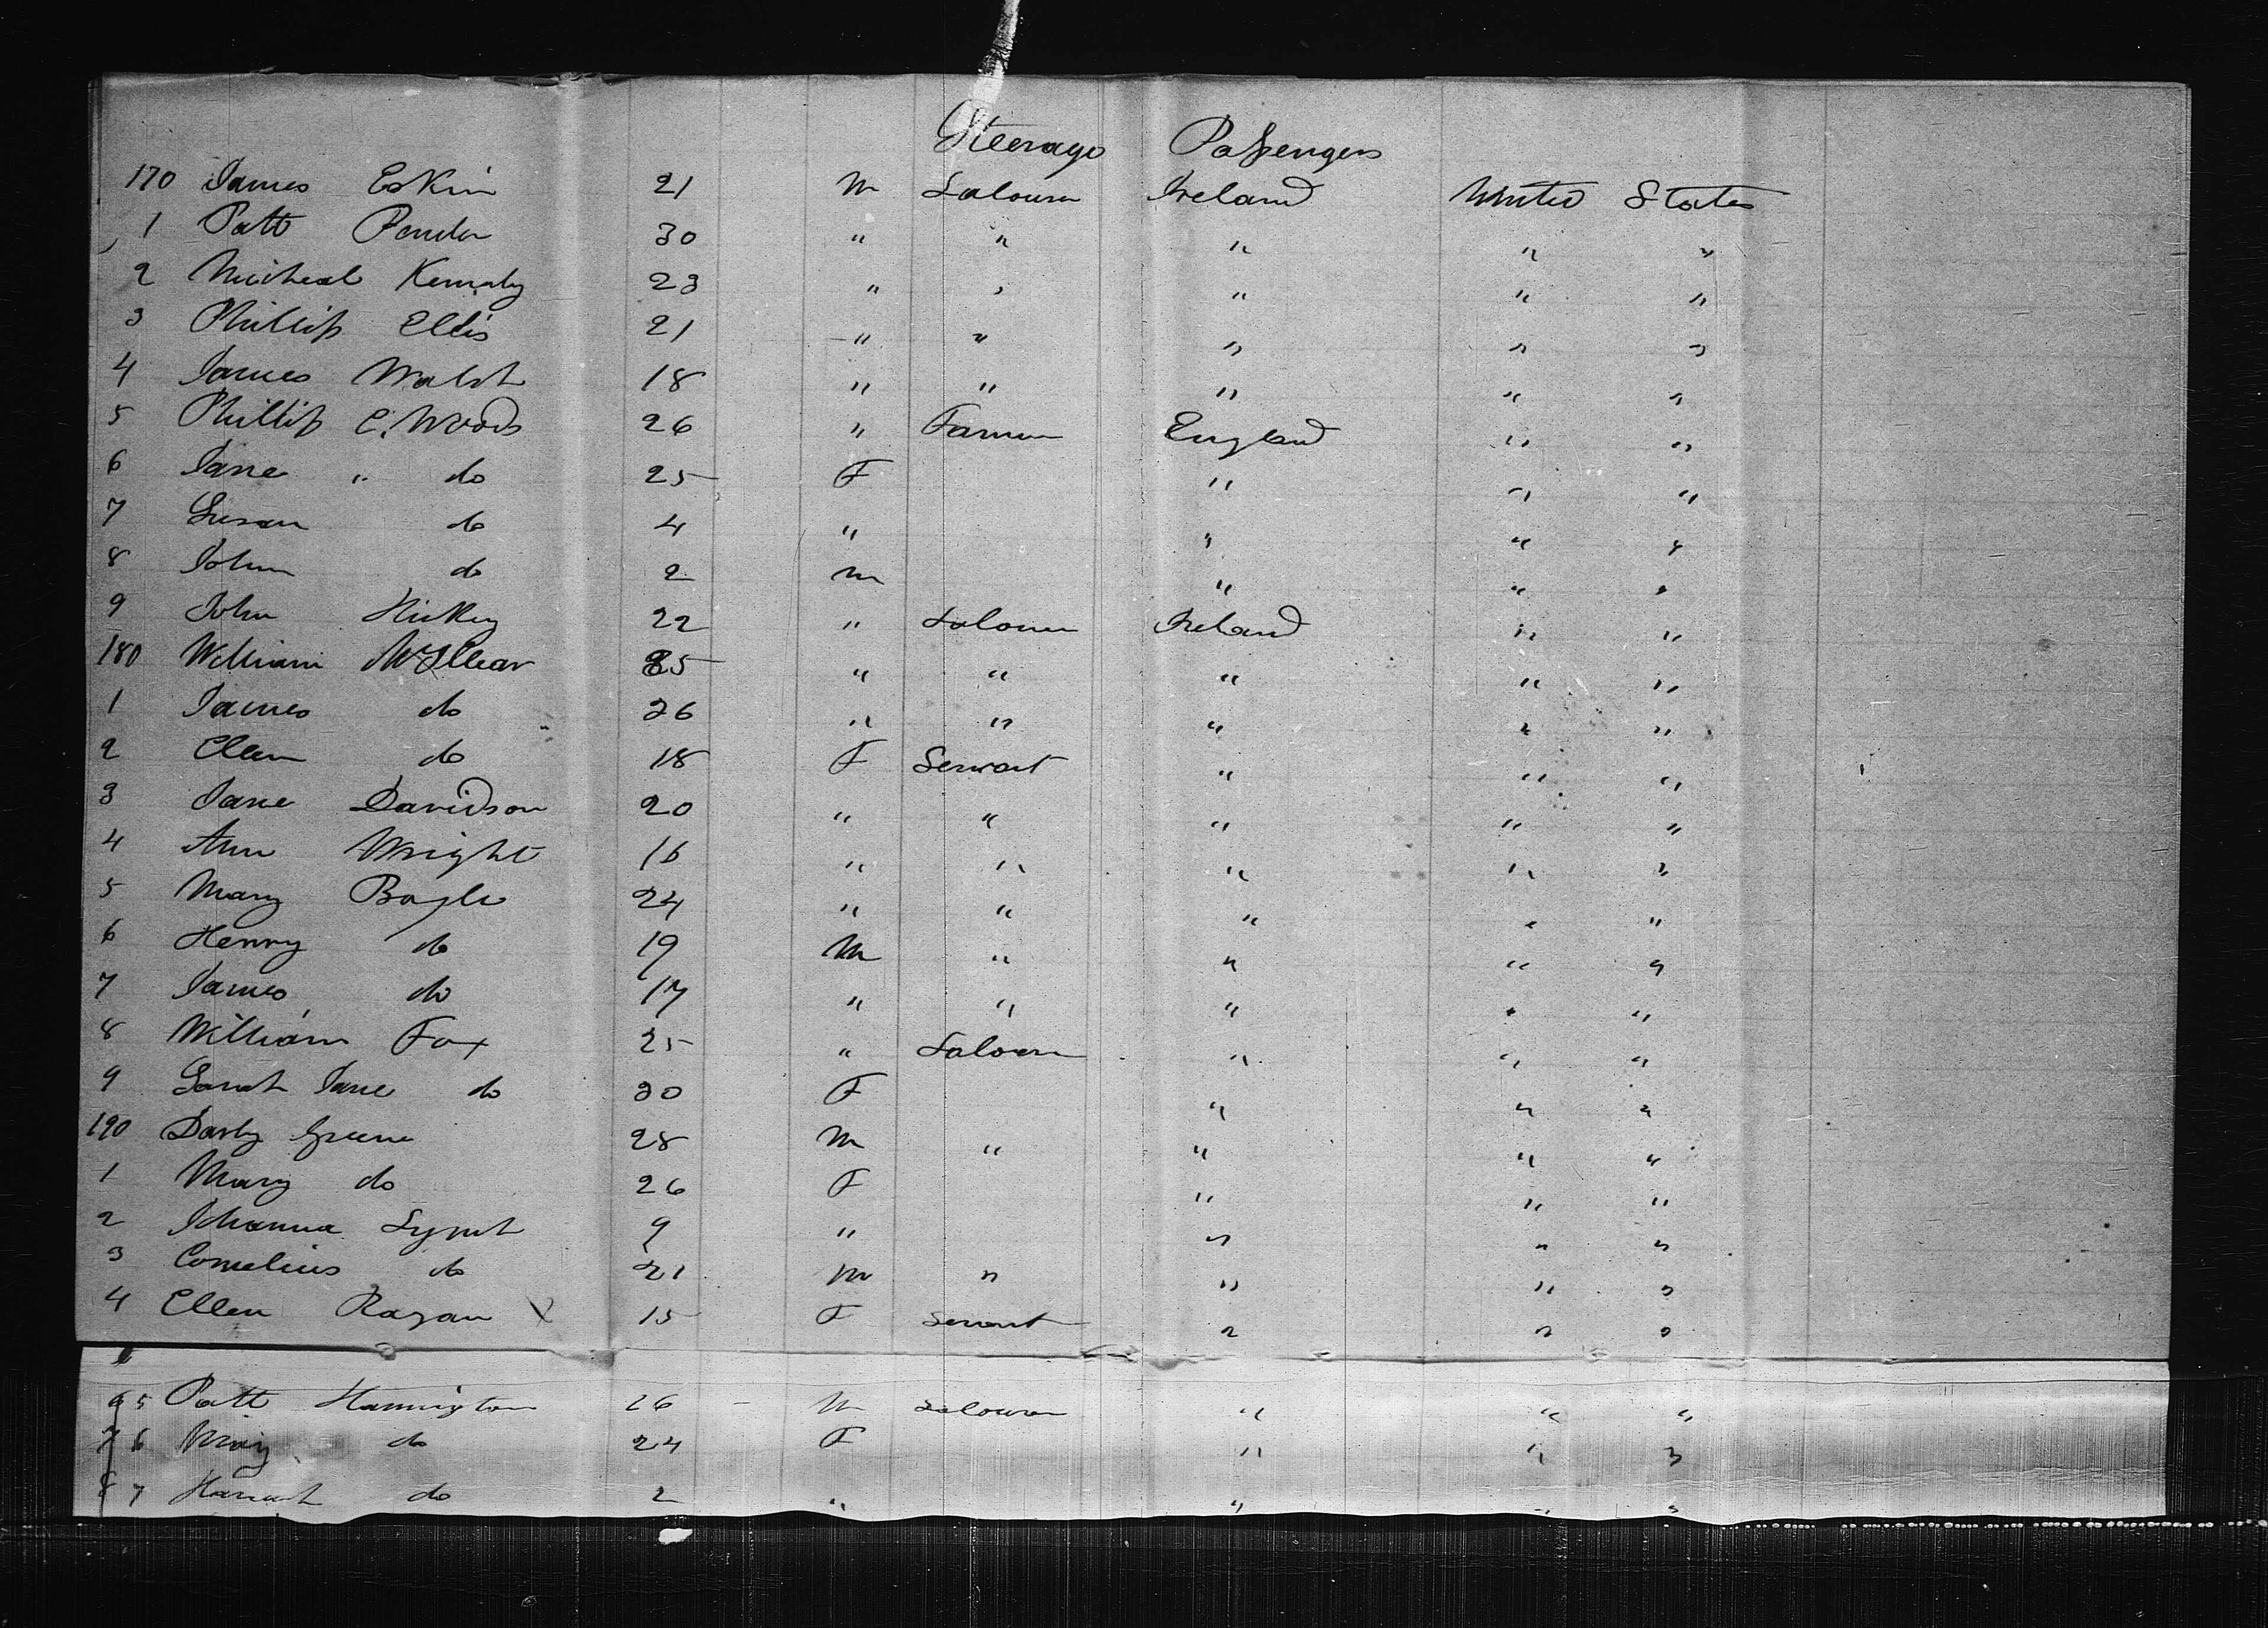 Steerage Passengers
170 James Eskin 21 m Labourer Ireland United States
1 Patt Pender 30 " " " " "
2 Micheal Kennedy 23 " " " " "
3 Phillip Ellis 21 " " " " "
4 James Walsh 18 " " " " "
5 Phillip C. Woods 26 " Farmer England " "
6 Jane " do 25 F " " "
7 Susan do 4 " " " "
8 John do 2 m " " "
9 John Hickey 22 " Labourer Ireland " "
180 William 25 " " " " "
1 James do 26 " " " " "
2 Ellen do 18 F Servant " " "
3 Jane Davidson 20 " " " " "
4 Ann Wright 16 " " " " "
5 Mary Boyle 24 " " " " "
6 Henry do 19 M " " " "
7 James do 17 " " " " "
8 William Fox 25 " Labourer " " "
9 Sarah Jane do 30 F " " "
190 Darby Greene 28 m " " " "
1 Mary do 26 F " " "
2 Johanna Lynch 9 " " " "
3 Cornelius do 21 m " " " "
4 Ellen Ragan 15 F Servant " " "
5 Patt Hannigton 26 m Labourer " " "
6 Mary do 24 F " " "
7 Hanah do 2 " " " "